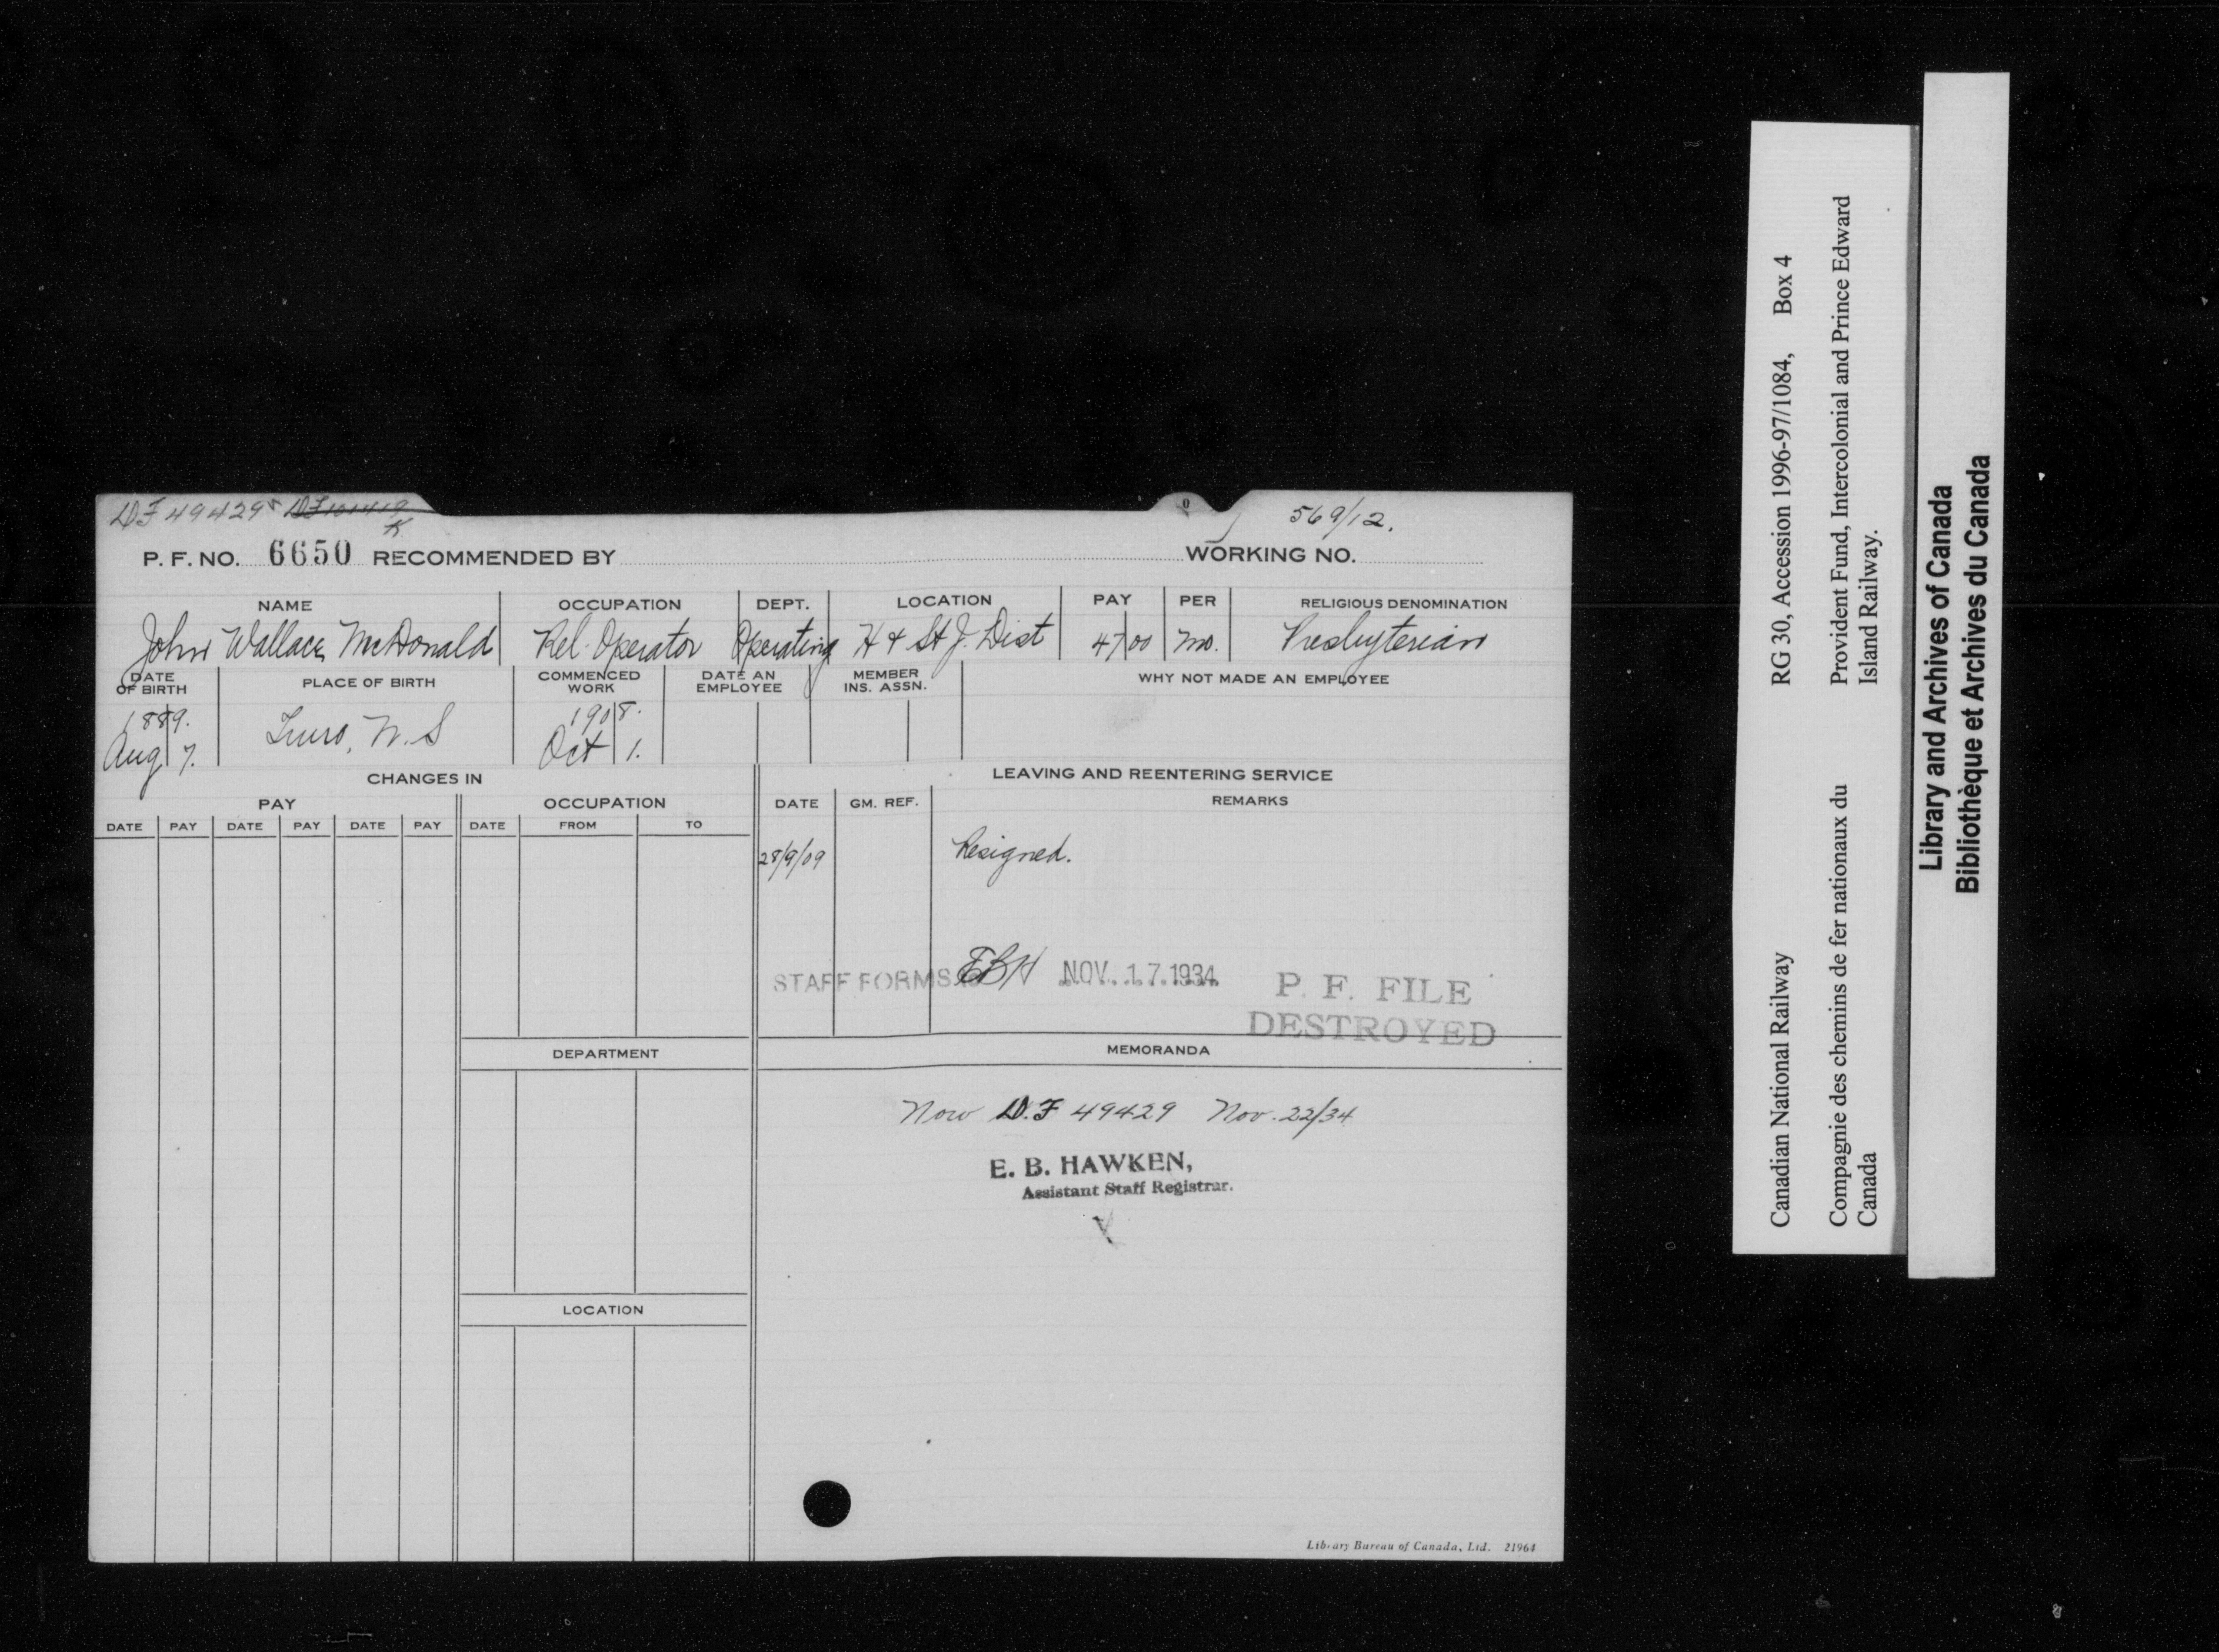 DF 49429 DF 101419
K
569/12.
P. F. NO. 6650 RECOMMENDED BY WORKING NO.
NAME OCCUPATION DEPT. LOCATION PAY PER RELIGIOUS DENOMINATION
John Wallace McDonald Rel. Operator Operating H & St J. Dist 47 00 mo. Presbyterian
DATE OF BIRTH PLACE OF BIRTH COMMENCED WORK DATE AN EMPLOYEE MEMBER INS. ASSN. WHY NOT MADE AN EMPLOYEE
1889. Truro, N.S 1908.
Aug 7. Oct 1.
CHANGES IN LEAVING AND REENTERING SERVICE
PAY OCCUPATION DATE GM. REF. REMARKS
DATE PAY DATE PAY DATE PAY DATE FROM TO
28/9/09 Resigned.
STAFF FORMS EBH NOV. 17. 1934 P. F. FILE
DESTROYED
DEPARTMENT MEMORANDA
Now D.F 49429 Nov. 22/34
E. B. HAWKEN,
Assistant Staff Registrar.
LOCATION
Library Bureau of Canada, Ltd. 21964
Canadian National Railway RG 30, Accession 1996-97/1084, Box 4
Compagnie des chemins de fer nationaux du Provident Fund, Intercolonial and Prince Edward
Canada Island Railway.
Library and Archives of Canada
Bibliothèque et Archives du Canada